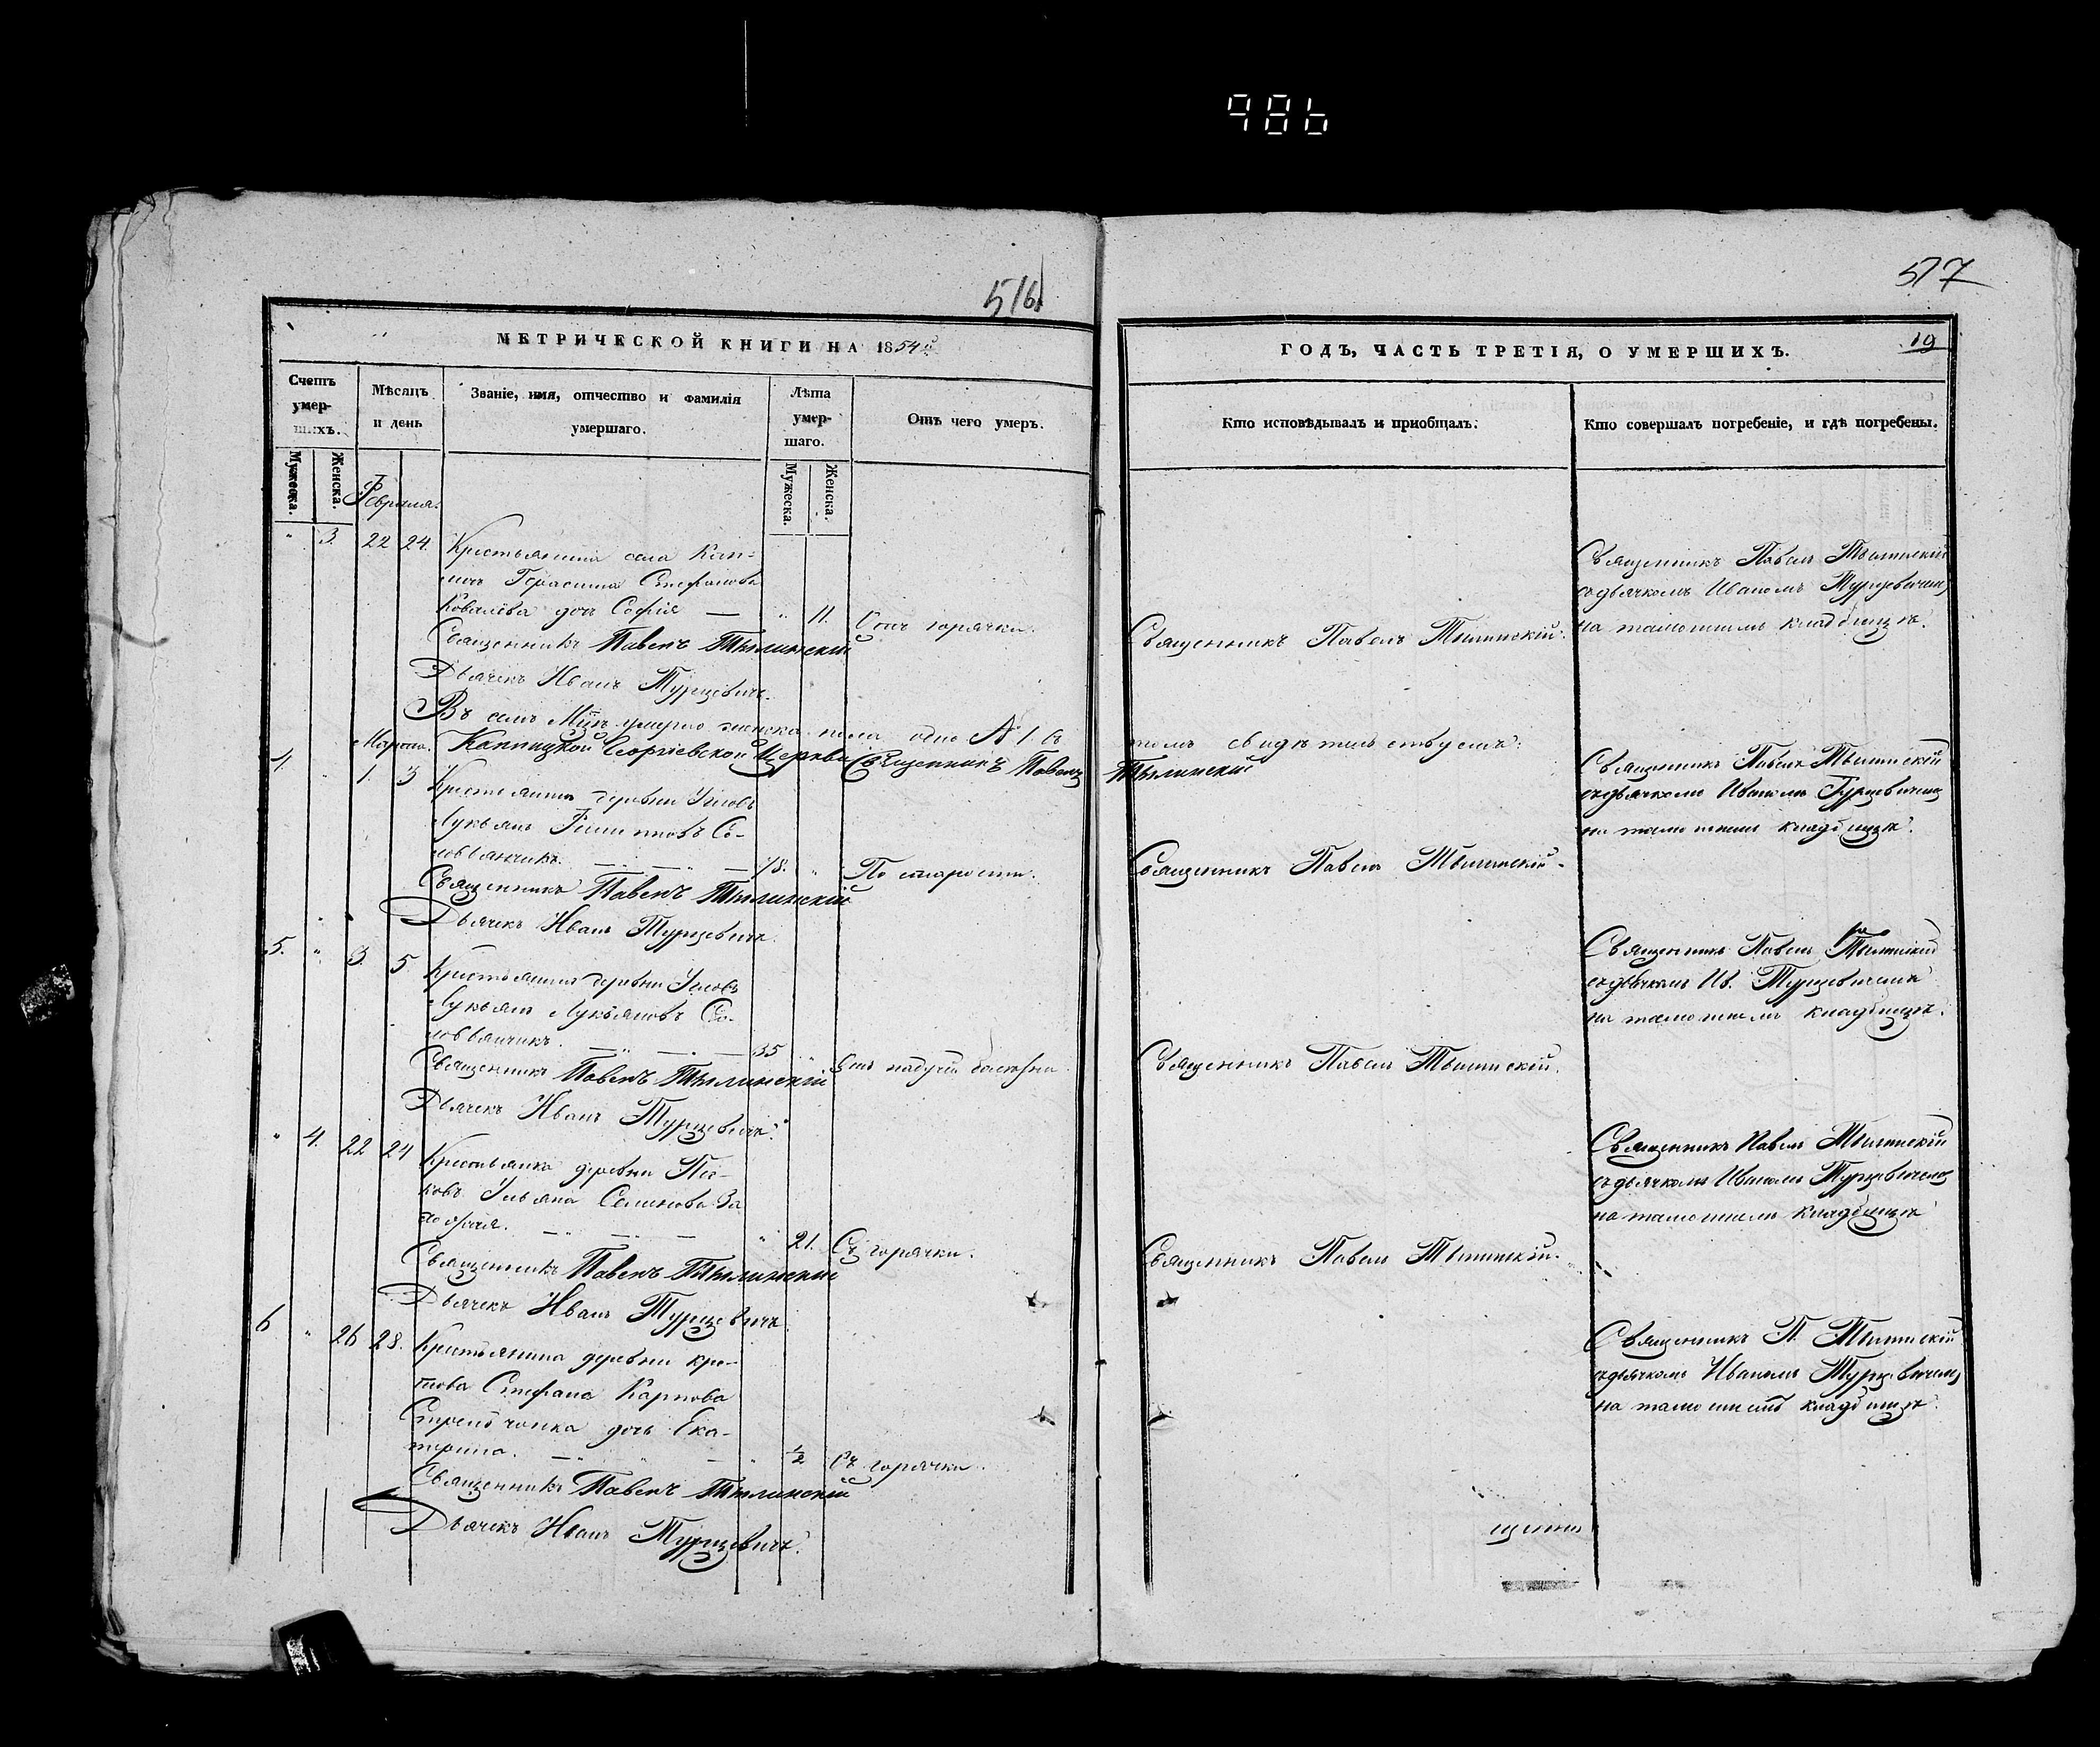 986
516
МЕТРИЧЕСКОЙ КНИГИ НА 1854й
Счетъ умер-шихъ.
Мѣсяцъ и день
Званіе, имя, отчество и фамилія умершаго.
Лѣта умер-шаго.
Отъ чего умеръ.
Мужеска.
Женска.
Мужеска.
Женска.
Февраля.
" 3. 22 24. Крестьянина села Кап-
Герасима Стефанова
Ковалева дочь Софія — " 11. горячки.
Священникъ Павелъ Тылинскій
Дьячекъ Иванъ Турцевичъ.
Въ семъ Мцѣ умерло женска пола одно № 1. въ
Марта. Каплицкой Георгіевской Церкви Священникъ Павелъ
4. " 1. 3 Крестьянинъ деревни Угловъ
Лукьянъ Со-
ловьянчикъ. — 78. " По старости.
Священникъ Павелъ Тылинскій
Дьячекъ Иванъ Турцевичъ.
5. " 3. 5 Крестьянинъ деревни Угловъ
Лукьянъ Лукьяновъ Со-
ловьянчикъ. — 35
Священникъ Павелъ Тылинскій
Дьячекъ Иванъ Турцевичъ.
" 4. 22 24 Крестьянка деревни
Ульяна Семенова
— " 21. Съ горячки.
Священникъ Павелъ Тылинскій
Дьячекъ Иванъ Турцевичъ
6 " 26 28. Крестьянина деревни Кро-
това Стефана Карпова
дочь Ека-
терина. — " ½ Съ горячки.
Священникъ Павелъ Тылинскій
Дьячекъ Иванъ Турцевичъ.
517
ГОДЪ, ЧАСТЬ ТРЕТІЯ, О УМЕРШИХЪ.
19
Кто исповѣдывалъ и приобщалъ.
Кто совершалъ погребеніе, и гдѣ погребены.
Священникъ Павелъ Тылинскій
съ дьячкомъ Иваномъ Турцевичемъ
на тамошнемъ кладбищѣ.
Священникъ Павелъ Тылинскій.
томъ свидѣтельствуемъ:
Тылинскій
Священникъ Павелъ Тылинскій
съ дьячкомъ Иваномъ Турцевичемъ
на тамошнемъ кладбищѣ.
Священникъ Павелъ Тылинскій.
Священникъ Павелъ Тылинскій
съ дьячкомъ Ив. Турцевичемъ
на тамошнемъ кладбищѣ.
Священникъ Павелъ Тылинскій.
Священникъ Павелъ Тылинскій
съ дьячкомъ Иваномъ Турцевичемъ
на тамошнемъ кладбищѣ
Священникъ Павелъ Тылинскій.
Священникъ П. Тылинскій
съ дьячкомъ Иваномъ Турцевичемъ
на тамошнемъ кладбищѣ.